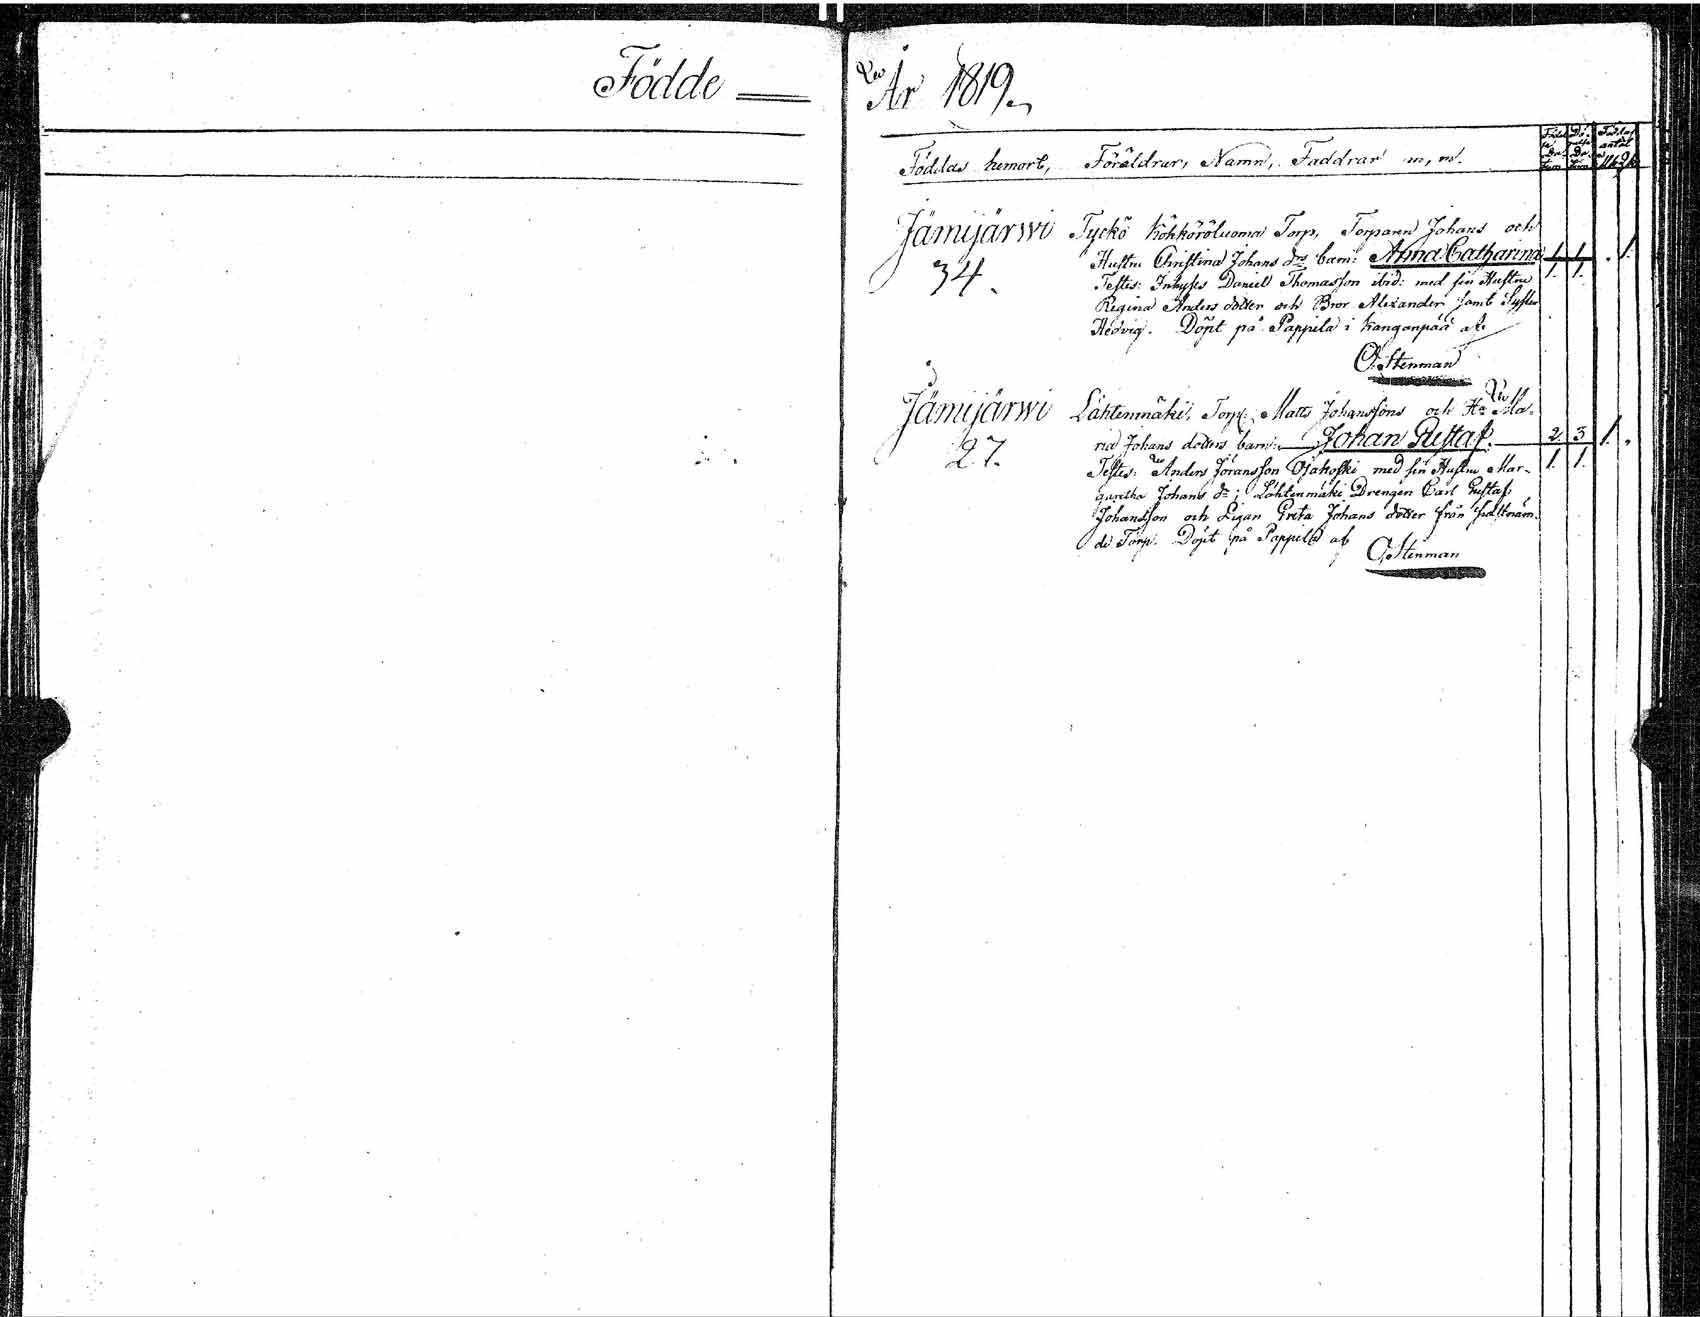 Födde
År 1819.
Föddas hemort, Föräldrar, Namn, Faddrar m, m.
Jämijärwi Tyckö Kohköröluoma Torp, Torparen Johans och
34. Hustru Christina Johans drs barn: Anna Catharina 1/1. 1/1. 1.
Testes: Inhyses Daniel Thomasson ibid: med sin Hustru
Regina Anders dotter och Bror Alexander samt Syster
Hedvig. Döpt på Pappila i Kanganpää af
O. Stenman
Jämijärwi Lähtenmäki, Torp. Matts Johanssons och Hu Ma-
27. ria Johans dotters barn: Johan Gustaf. 2/1. 3/1. 1.
Testes: Anders Göransson Ojakoski med sin Hustru Mar-
garetha Johans dr; Lähtenmäki Drengen Carl Gustaf
Johansson och Pigan Greta Johans dotter från
de Torp. Döpt på Pappila af
O. Stenman